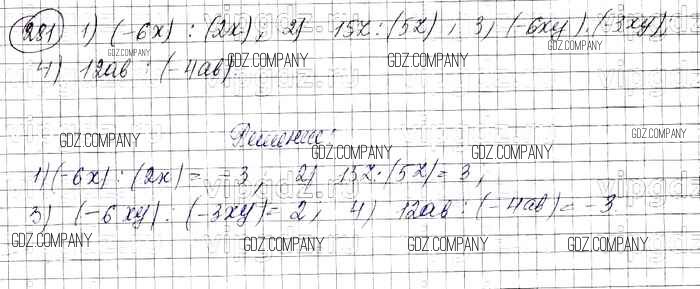 281 1) (-6x) : (2x), 2) 15z : (5z), 3) (-6xy) : (-3xy);
4) 12ab : (-4ab)
Решение:
1) (-6x) : (2x) = -3, 2) 15z : (5z) = 3,
3) (-6xy) : (-3xy) = 2, 4) 12ab : (-4ab) = -3
GDZ.COMPANY GDZ.COMPANY GDZ.COMPANY GDZ.COMPANY
GDZ.COMPANY GDZ.COMPANY
GDZ.COMPANY GDZ.COMPANY
GDZ.COMPANY GDZ.COMPANY GDZ.COMPANY GDZ.COMPANY